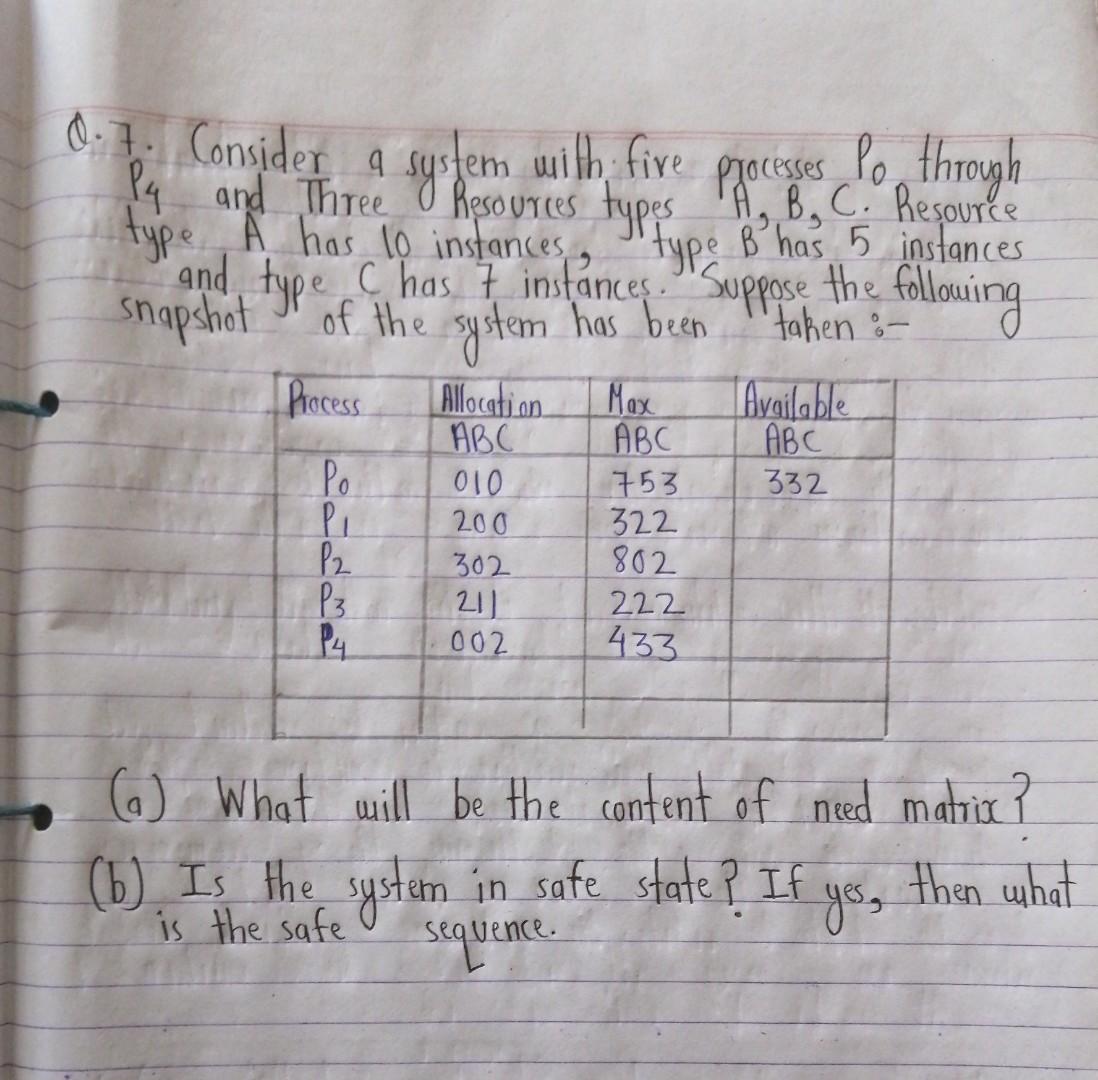 Q.7. Consider a system with five processes P0 through
P4 and Three Resources types A, B, C. Resource
type A has 10 instances, type B has 5 instances
and type C has 7 instances. Suppose the following
snapshot of the system has been taken :-
Process Allocation Max Available
ABC ABC ABC
P0 010 753 332
P1 200 322
P2 302 802
P3 211 222
P4 002 433
(a) What will be the content of need matrix?
(b) Is the system in safe state? If yes, then what
is the safe sequence.